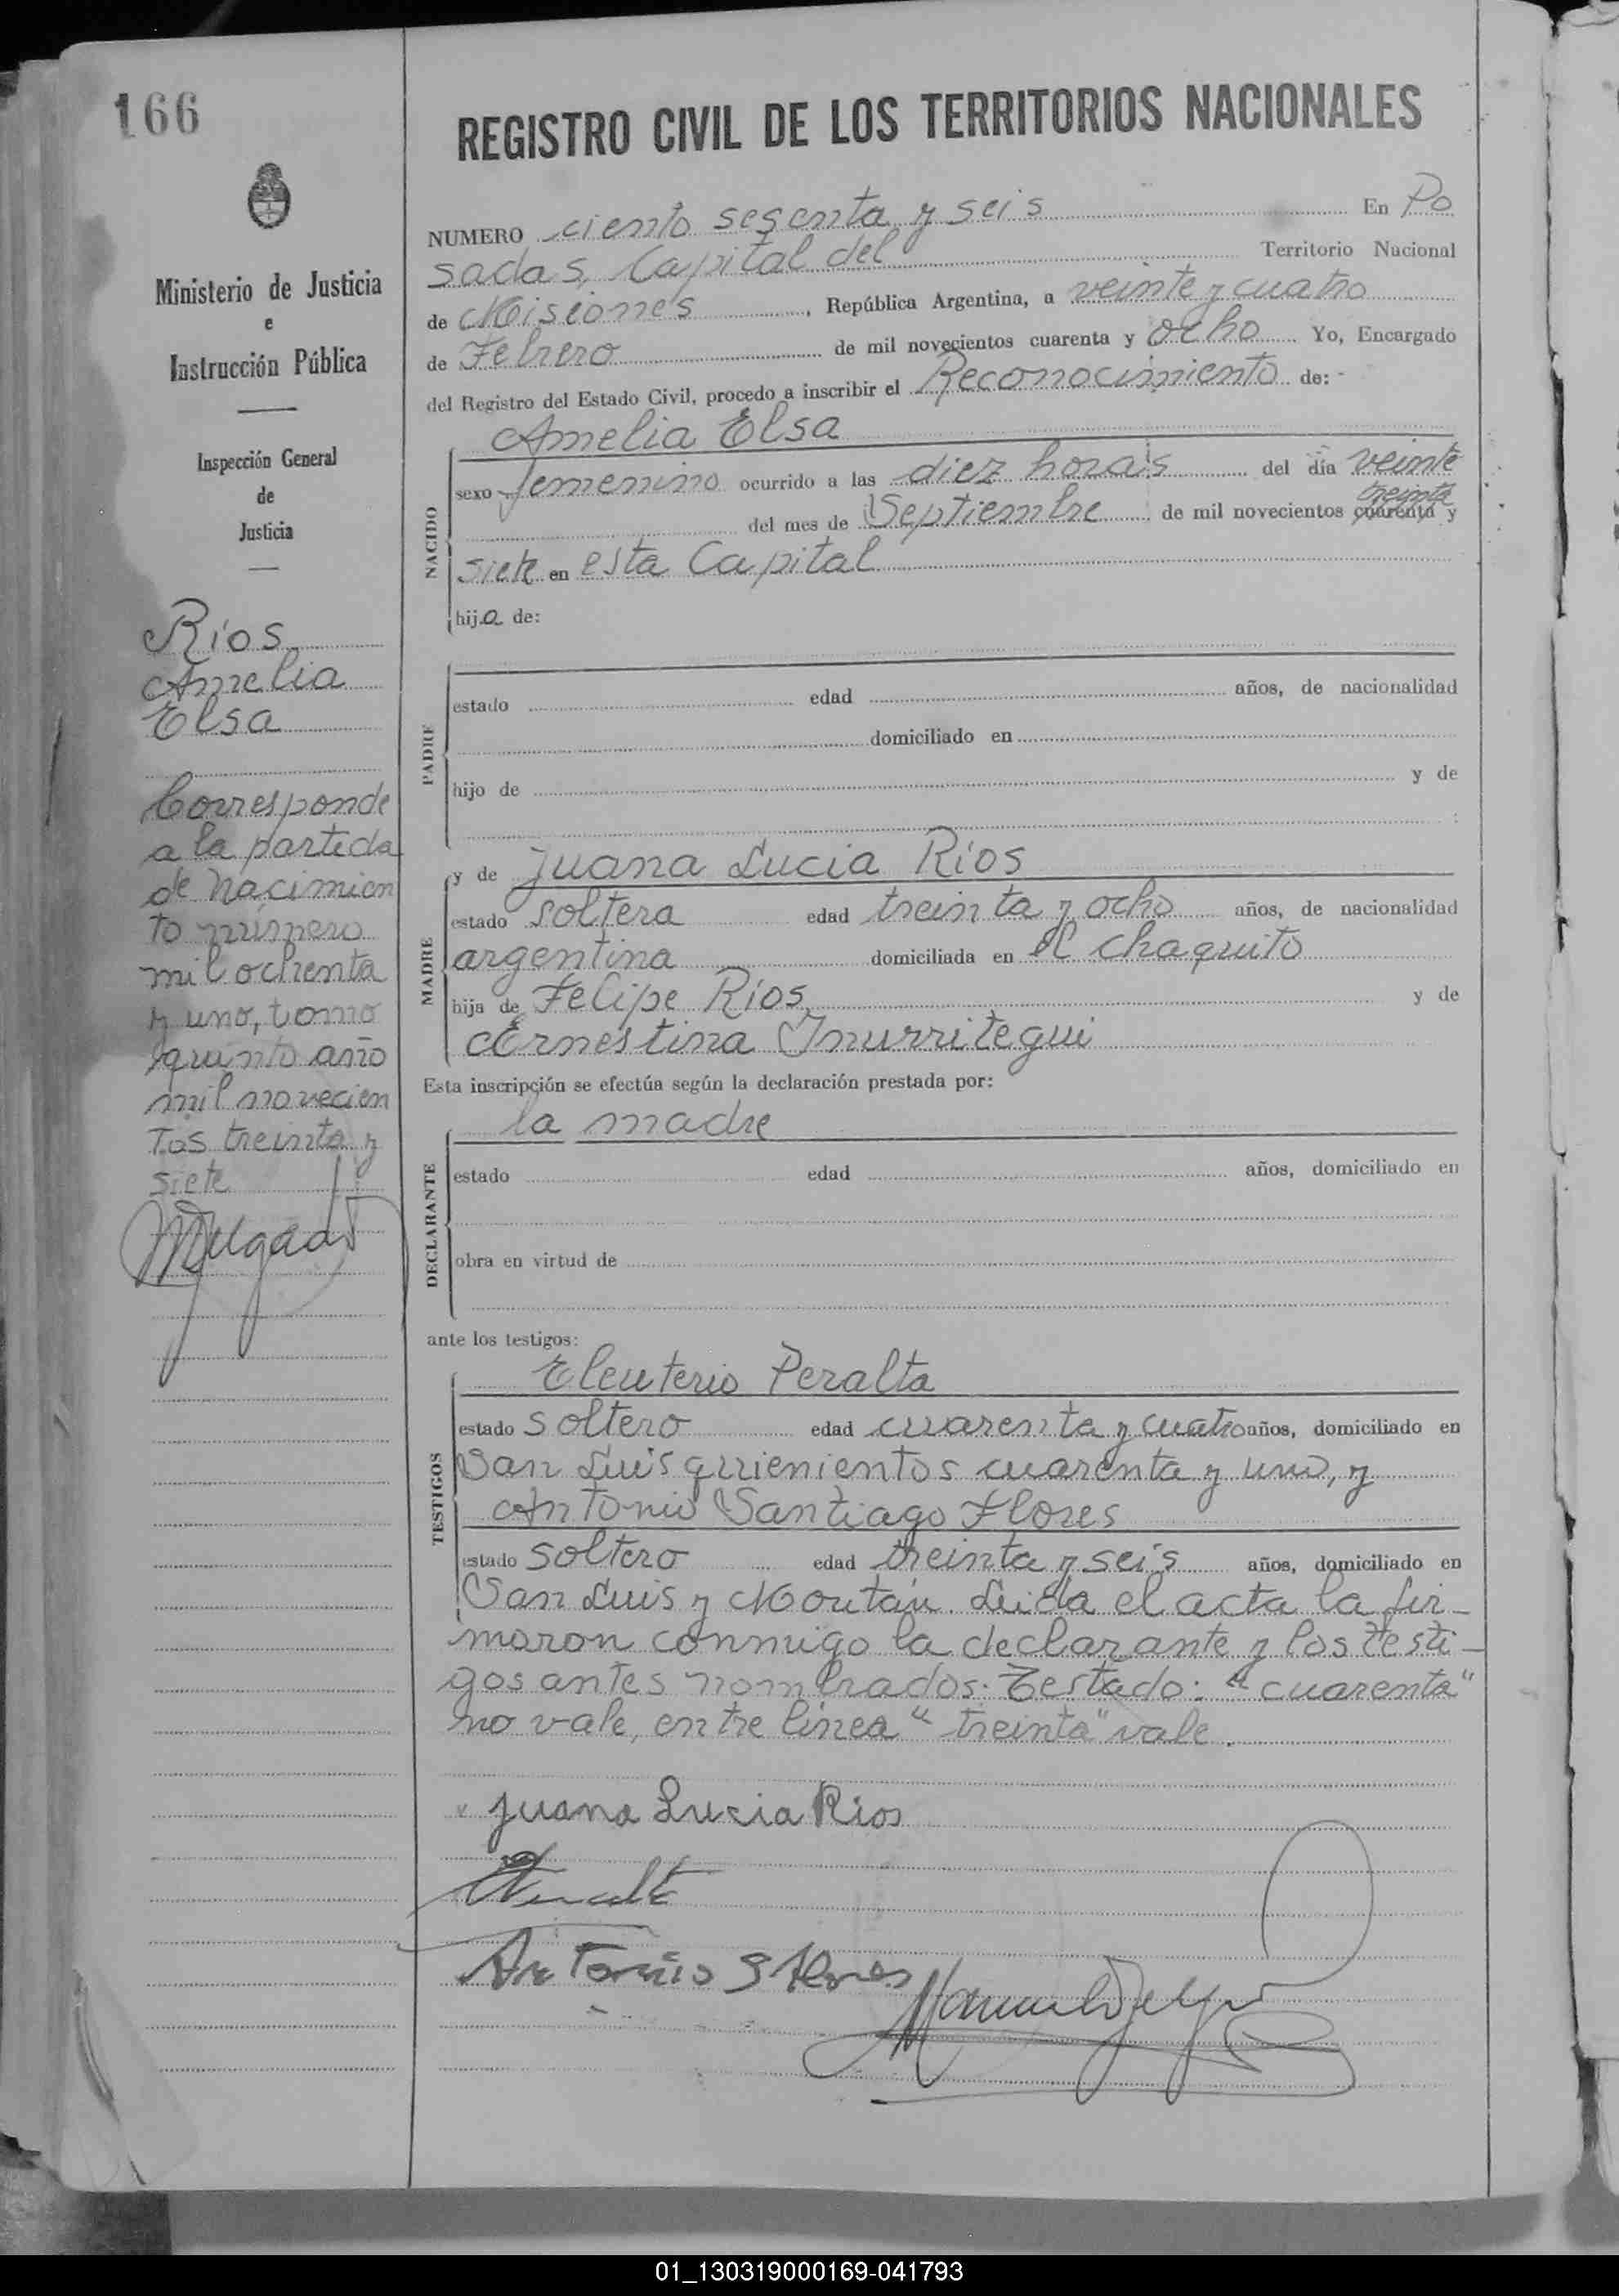 166
REGISTRO CIVIL DE LOS TERRITORIOS NACIONALES
NUMERO ciento sesenta y seis En Po
sadas, Capital del Territorio Nacional
de Misiones, República Argentina, a veinte y cuatro
de Febrero de mil novecientos cuarenta y ocho Yo, Encargado
del Registro del Estado Civil, procedo a inscribir el Reconocimiento de:-
Ministerio de Justicia
e
Instrucción Pública
Inspección General
de
Justicia
Ríos
Amelia
Elsa
Corresponde
a la partida
de nacimien
to número
mil ochenta
y uno, tomo
quinto año
mil novecien
tos treinta y
siete
NACIDO
Amelia Elsa
sexo femenino ocurrido a las diez horas del día veinte
treinta
del mes de Septiembre de mil novecientos cuarenta y
siete en esta Capital
hija de:
PADRE
estado edad años, de nacionalidad
domiciliado en
hijo de y de
:
MADRE
y de Juana Lucia Ríos
estado soltera edad treinta y ocho años, de nacionalidad
argentina domiciliada en el chaquito
hija de Felipe Ríos y de
Ernestina Inurritegui
Esta inscripción se efectúa según la declaración prestada por:
la madre
DECLARANTE
estado edad años, domiciliado en
obra en virtud de
ante los testigos:
TESTIGOS
Eleuterio Peralta
estado soltero edad cuarenta y cuatro años, domiciliado en
San Luis quienientos cuarenta y uno, y
Antonio Santiago Flores
estado soltero edad treinta y seis años, domiciliado en
San Luis y Moután. Leida el acta la fir-
maron conmigo la declarante y los testi-
gos antes nombrados. Testado: "cuarenta"
no vale, entre línea "treinta" vale.
Juana Lucia Rios
Antonio S Flores